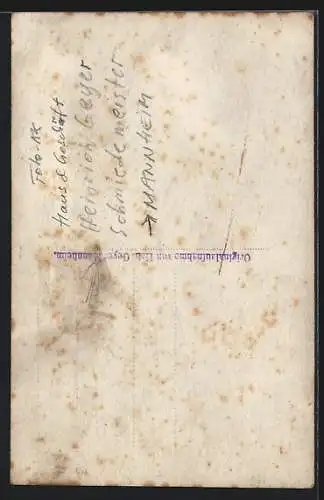 Foto-AK
Haus & Geschäft
Heinrich Geyer
Schmiedemeister
→ MANNHEIM
Originalaufnahme von Hch. Geyer Mannheim.